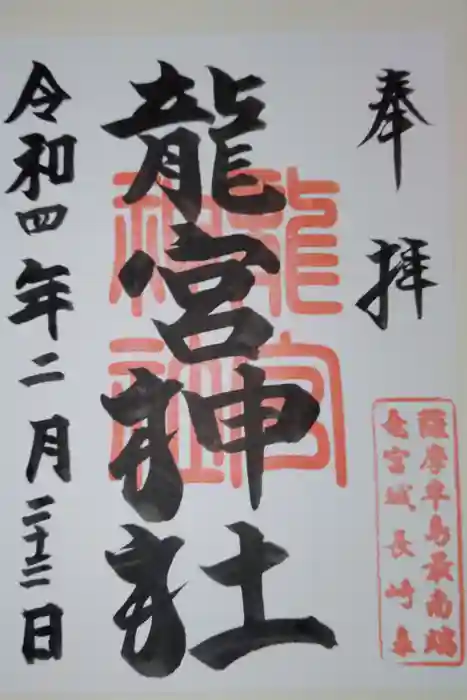 奉拝
薩摩半島最南端
竜宮城長崎鼻
龍宮神社
龍宮神社
令和四年二月二十三日